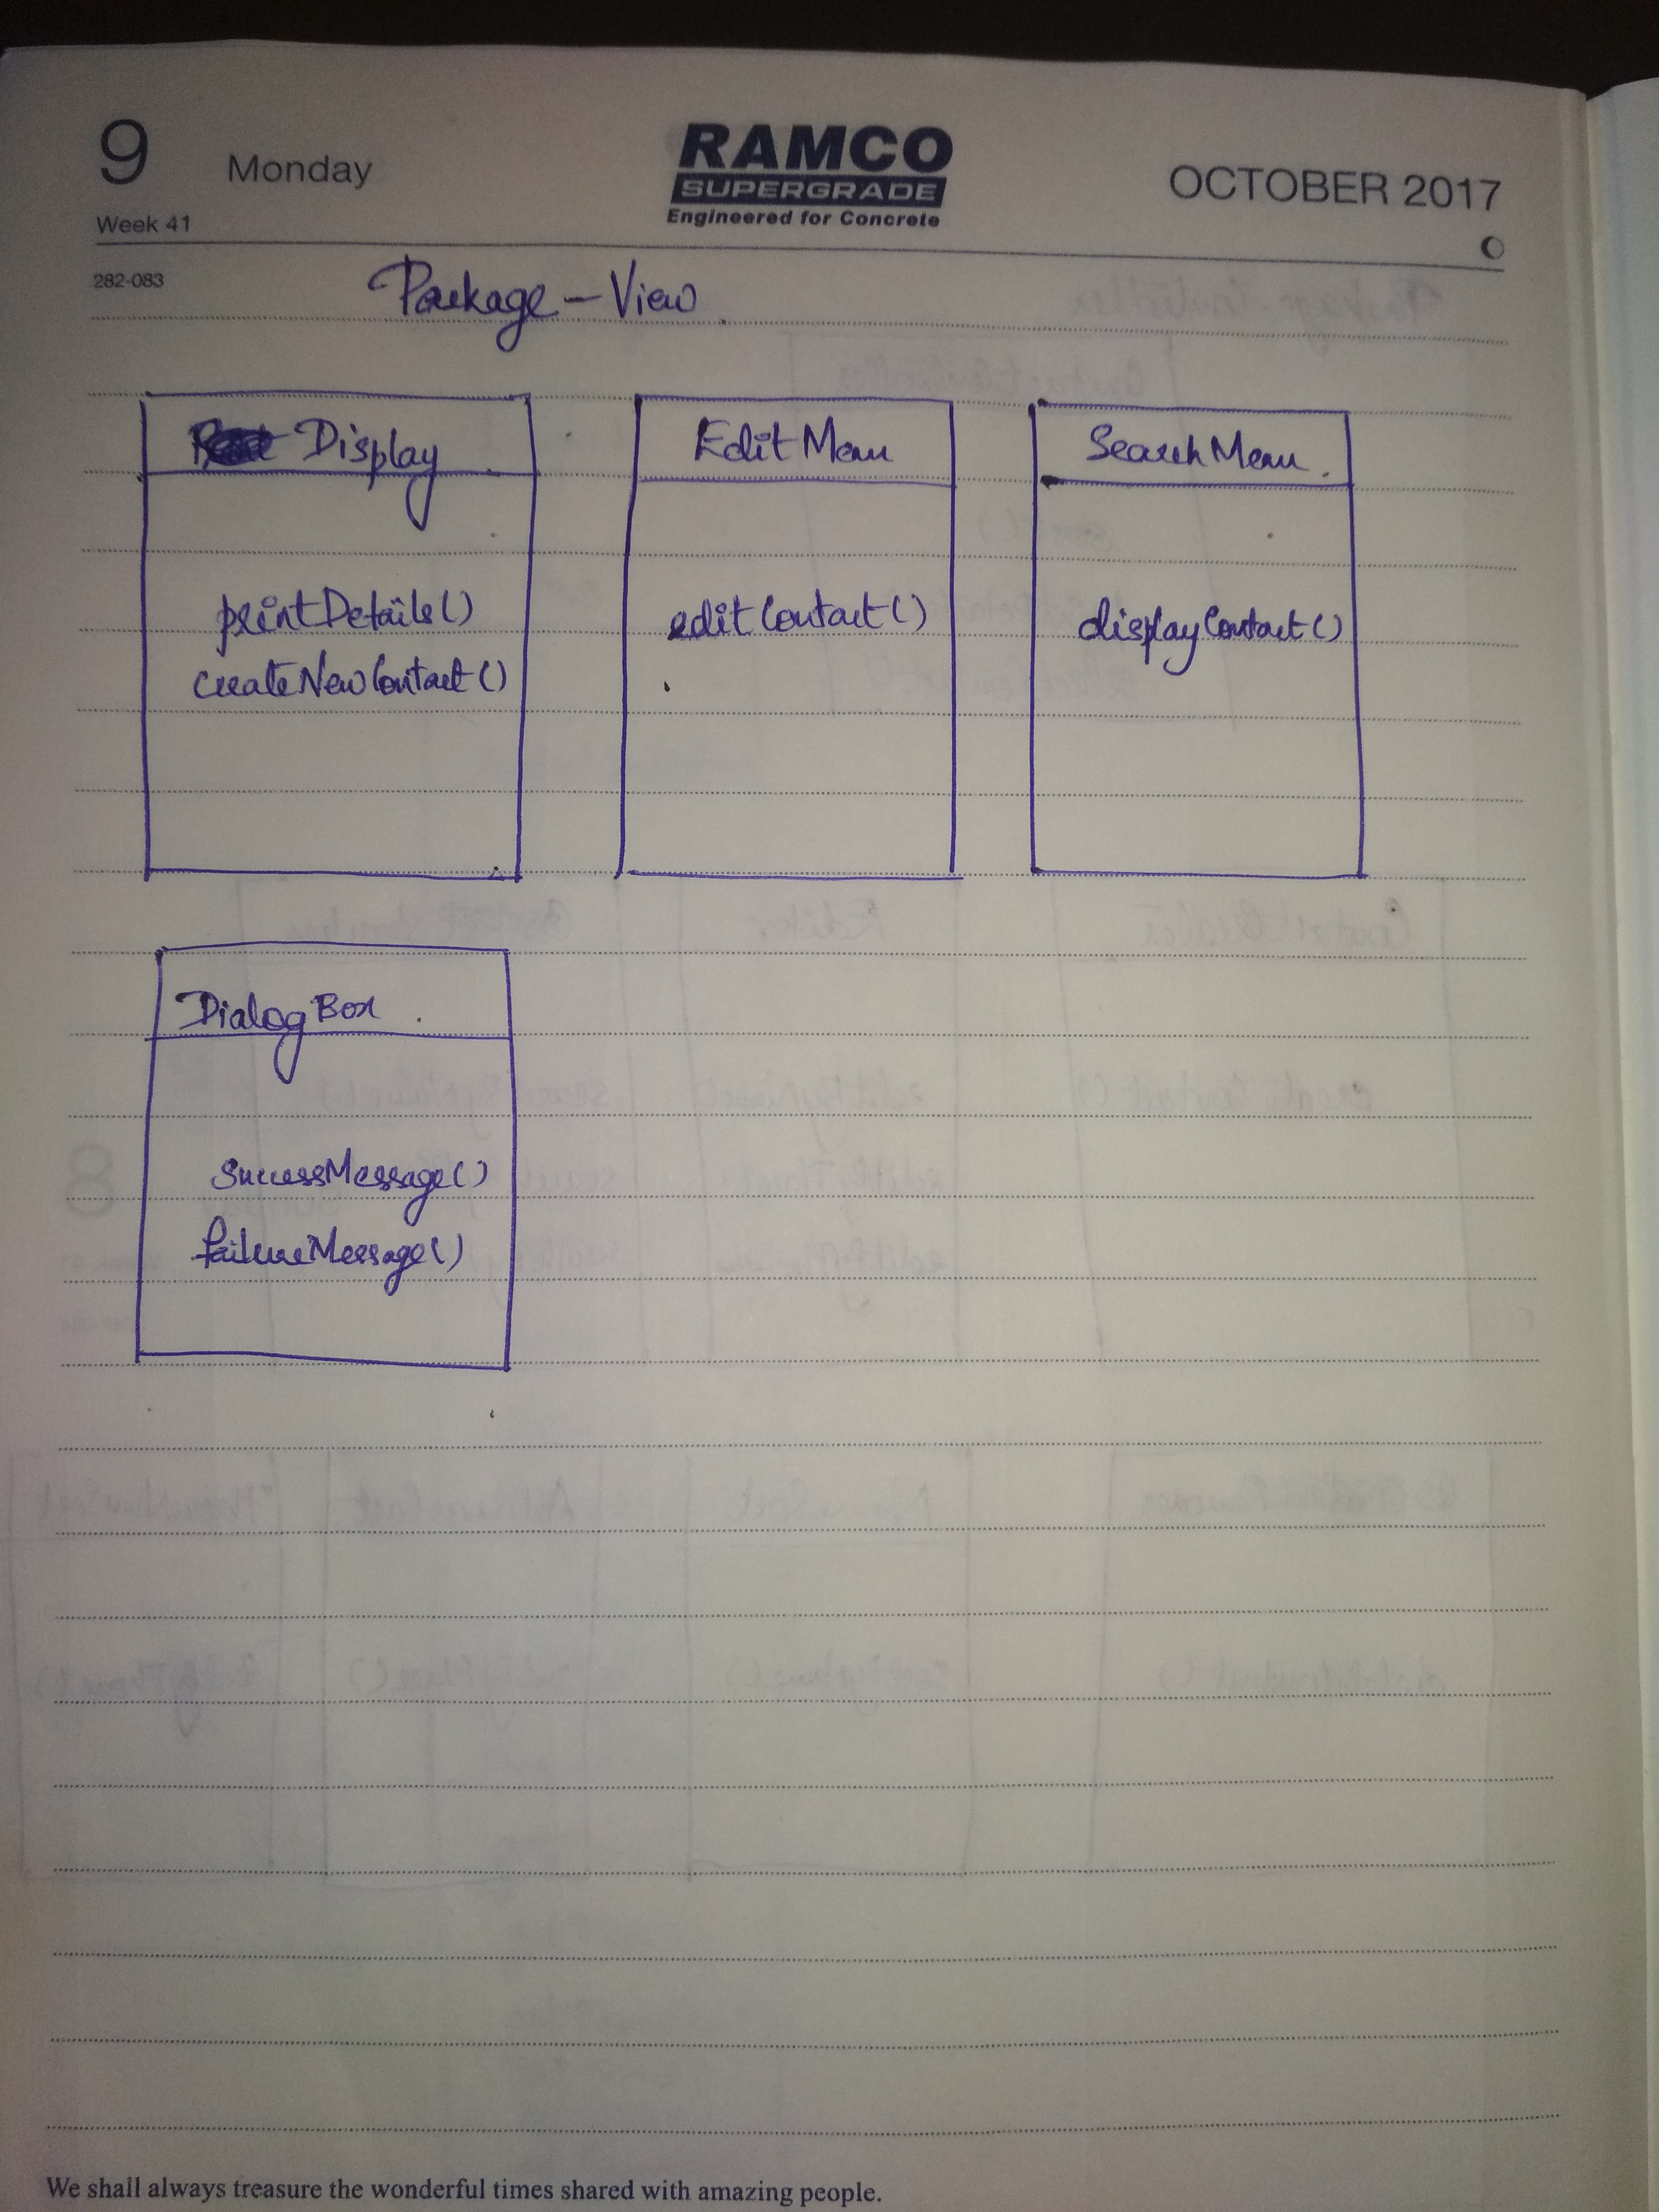 9 Monday
RAMCO
SUPERGRADE
Engineered for Concrete
OCTOBER 2017
Week 41
282-083
Package - View
Display
Edit Menu
Search Menu
printDetails()
createNewContact()
editContact()
displayContact()
Dialog Box
SuccessMessage()
failureMessage()
8
We shall always treasure the wonderful times shared with amazing people.